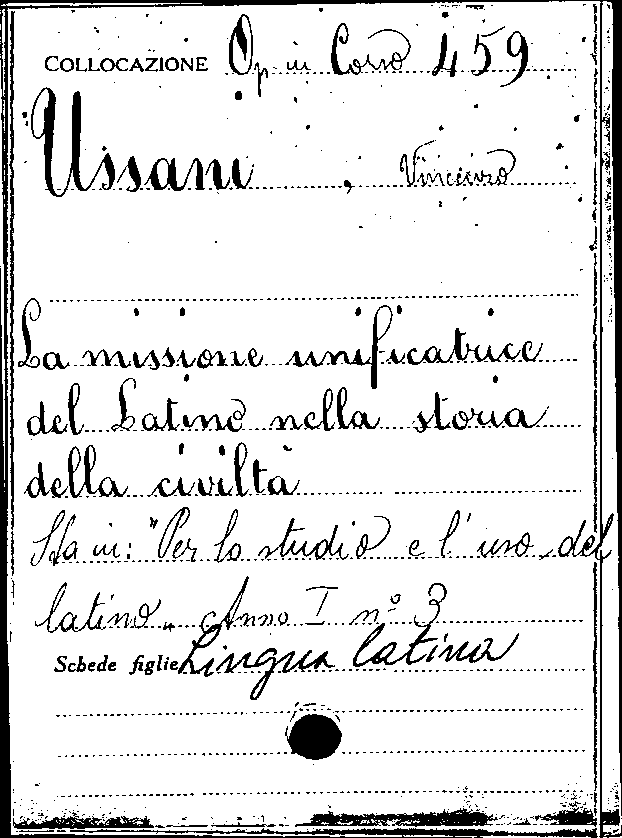 COLLOCAZIONE Op in Corso 459
Ussani, Vincenzo
La missione unificatrice
del Latino nella storia
della civiltà
Sta in: "Per lo studio e l'uso del
latino" Anno I nº 3
Schede figlie Lingua latina